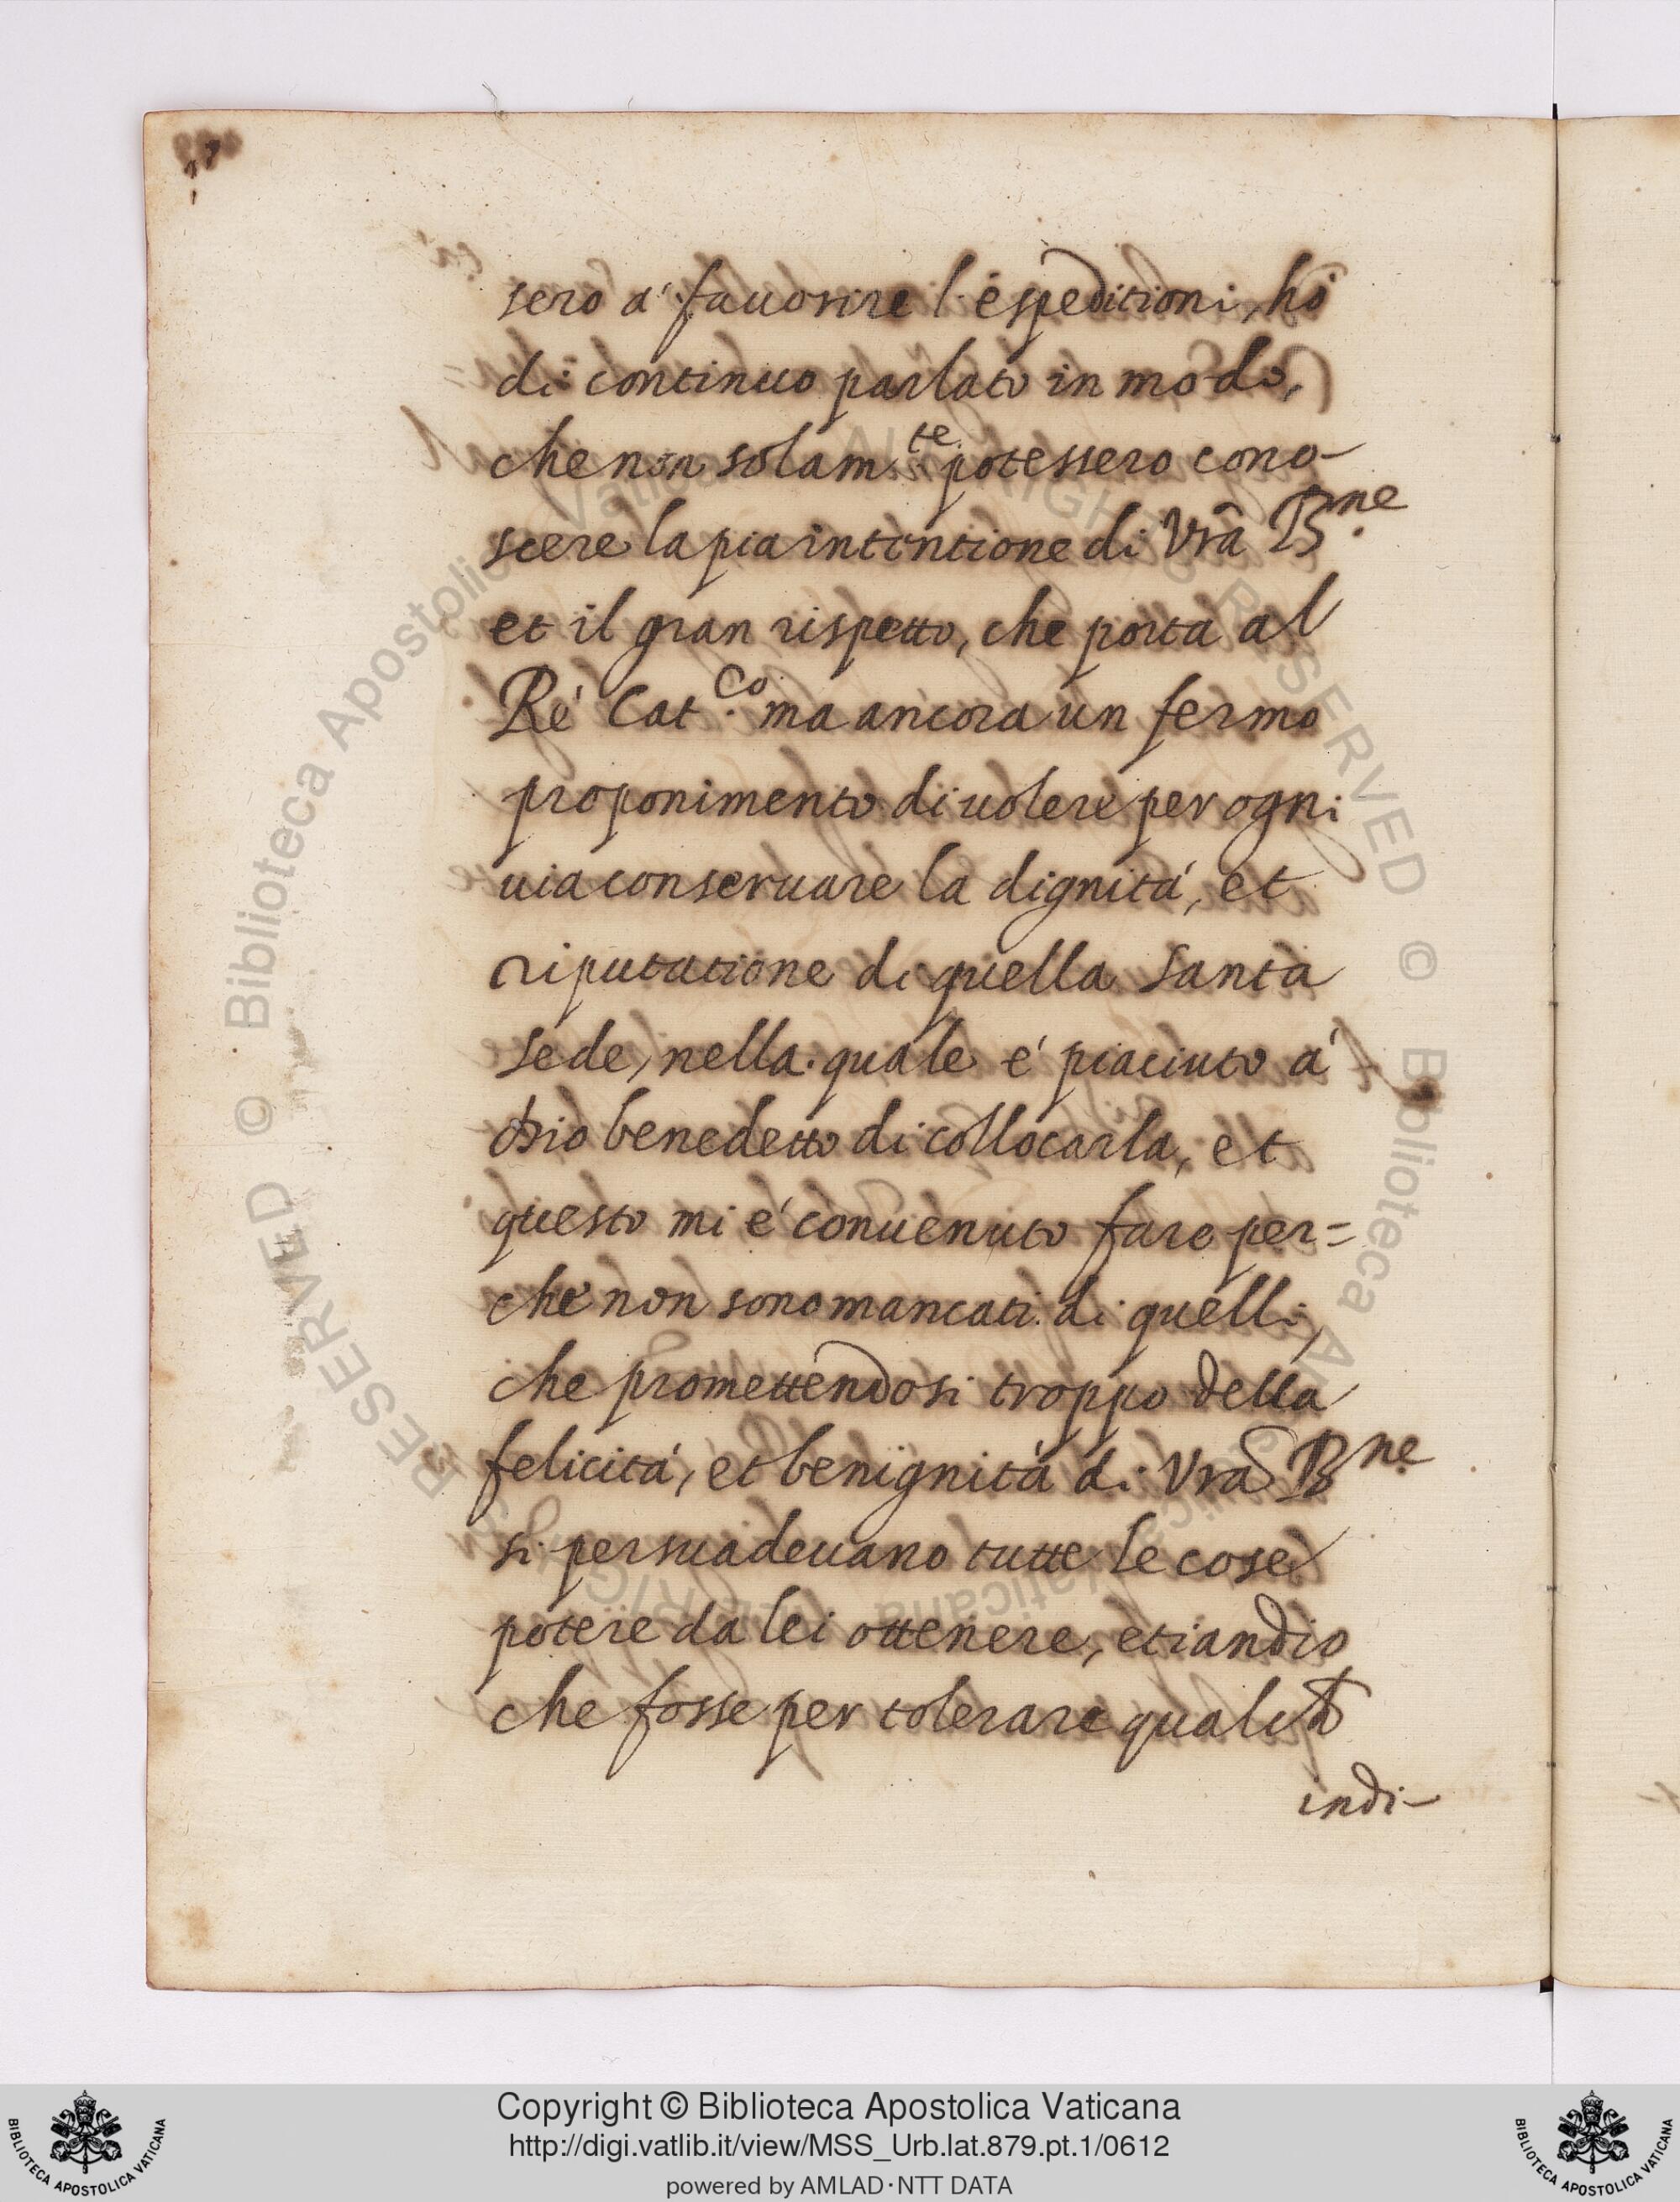 sero a' fauorire l'espeditioni, hò
di continuo parlato in modo,
che non solam.te potessero cono-
scere la pia intentione di Vrã B.ne
et il gran rispetto, che porta al
Ré Cat.co ma ancora un fermo
proponimento di uolere per ogni
uia conseruare la dignitá, et
riputatione di quella Santa
Sede, nella quale é piaciuto á
Dio benedetto di collocarla, et
questo mi é conuenuto fare per=
che non sono mancati di quelli,
che promettendosi troppo della
felicitá, et benignitá di Vrã B.ne
si persuadeuano tutte le cose
potere da lei ottenere, etiandio
che fosse per tolerare
indi-
© Biblioteca Apostolica Vaticana ALL RIGHTS RESERVED © Biblioteca Apostolica Vaticana ALL RIGHTS RESERVED
Copyright © Biblioteca Apostolica Vaticana
http://digi.vatlib.it/view/MSS_Urb.lat.879.pt.1/0612
powered by AMLAD·NTT DATA
BIBLIOTECA APOSTOLICA VATICANA
BIBLIOTECA APOSTOLICA VATICANA